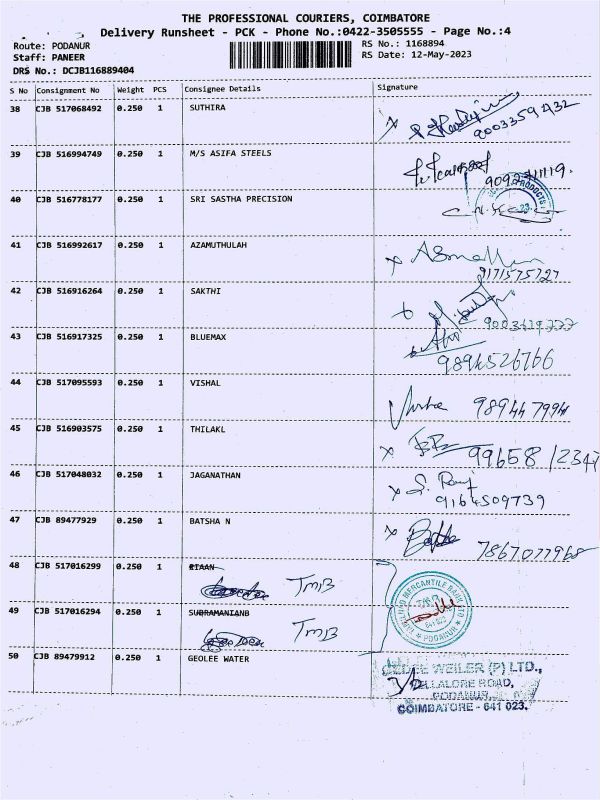 THE PROFESSIONAL COURIERS, COIMBATORE
Delivery Runsheet - PCK - Phone No.:0422-3505555 - Page No.:4
Route: PODANUR RS No.: 1168894
Staff: PANEER RS Date: 12-May-2023
DRS No.: DCJB116889404
S No Consignment No Weight PCS Consignee Details Signature
38 CJB 517068492 0.250 1 SUTHIRA
39 CJB 516994749 0.250 1 M/S ASIFA STEELS
40 CJB 516778177 0.250 1 SRI SASTHA PRECISION
PRODUCTS
23.
41 CJB 516992617 0.250 1 AZAMUTHULAH
9171575727
42 CJB 516916264 0.250 1 SAKTHI
43 CJB 516917325 0.250 1 BLUEMAX
9894526766
44 CJB 517095593 0.250 1 VISHAL
45 CJB 516903575 0.250 1 THILAKL
99658 12347
46 CJB 517048032 0.250 1 JAGANATHAN
9164509739
47 CJB 89477929 0.250 1 BATSHA N
7867077968
48 CJB 517016299 0.250 1 RIAAN
TMB
49 CJB 517016294 0.250 1 SUBRAMANIANB
TMB
TAMILNAD MERCANTILE BANK LTD
641 023
PODANUR
50 CJB 89479912 0.250 1 GEOLEE WATER
WEILER (P) LTD.,
ROAD,
PODANUR,
COIMBATORE - 641 023.